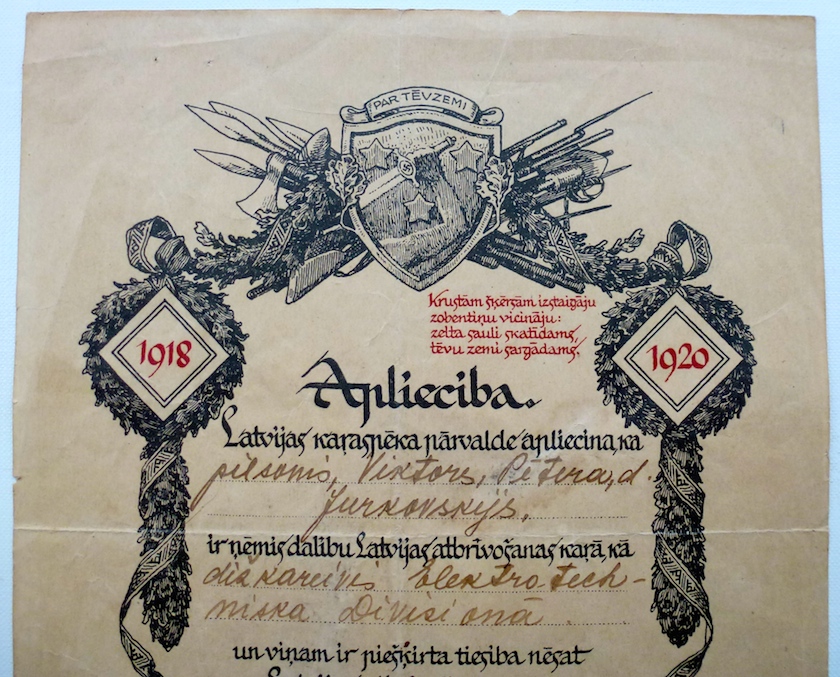 PAR TĒVZEMI
Krustām šķērsām izstaigāju
zobentiņu vicināju:
zelta sauli skatīdams,
tēvu zemi sargādams.
1918
1920
Apliecība.
Latvijas kaŗaspēka pārvalde apliecina, ka
pilsonis, Viktors, Pētera, d.
Jurkovskijs,
ir ņēmis dalību Latvijas atbrīvošanas kaŗā, kā
dižkareivis Elektrotech-
niskā Divisionā.
un viņam ir piešķirta tiesība nēsāt